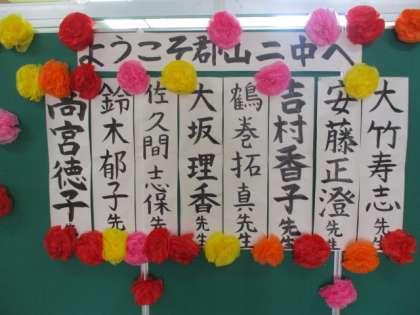 ようこそ郡山二中へ
大竹寿志先生
安藤正澄先生
吉村香子先生
鶴巻拓真先生
大坂理香先生
佐久間志保先
鈴木郁子先生
高宮徳子